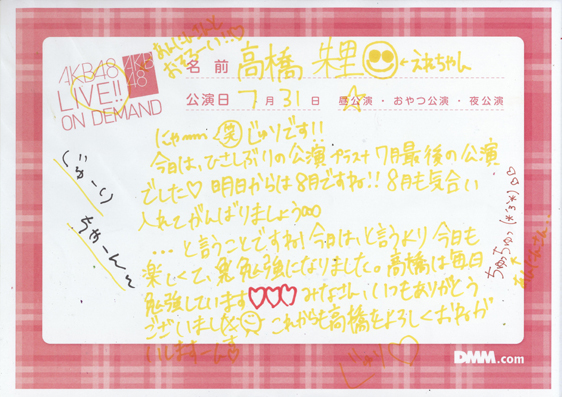 AKB48
LIVE!!
ON DEMAND
AKB
48
名前 高橋 朱里 ←えれちゃん
公演日 7月31日 昼公演・おやつ公演・夜公演
にゃー 笑 じゅりです!!
今日は、ひさしぶりの公演プラス 7月最後の公演
でした♡ 明日からは8月ですね!! 8月も気合い
入れてがんばりましょう
...と言うことですね! 今日は、と言うより今日も
楽しくて、勉強になりました。高橋は毎日
勉強しています♡♡♡ みなさん、いつもありがとう
ございました これからも高橋をよろしくおねが
いしまーす
じゅり♡
じゅーり
ちゃーん
ちゅちゅっ(*3*)♡♡
DMM.com